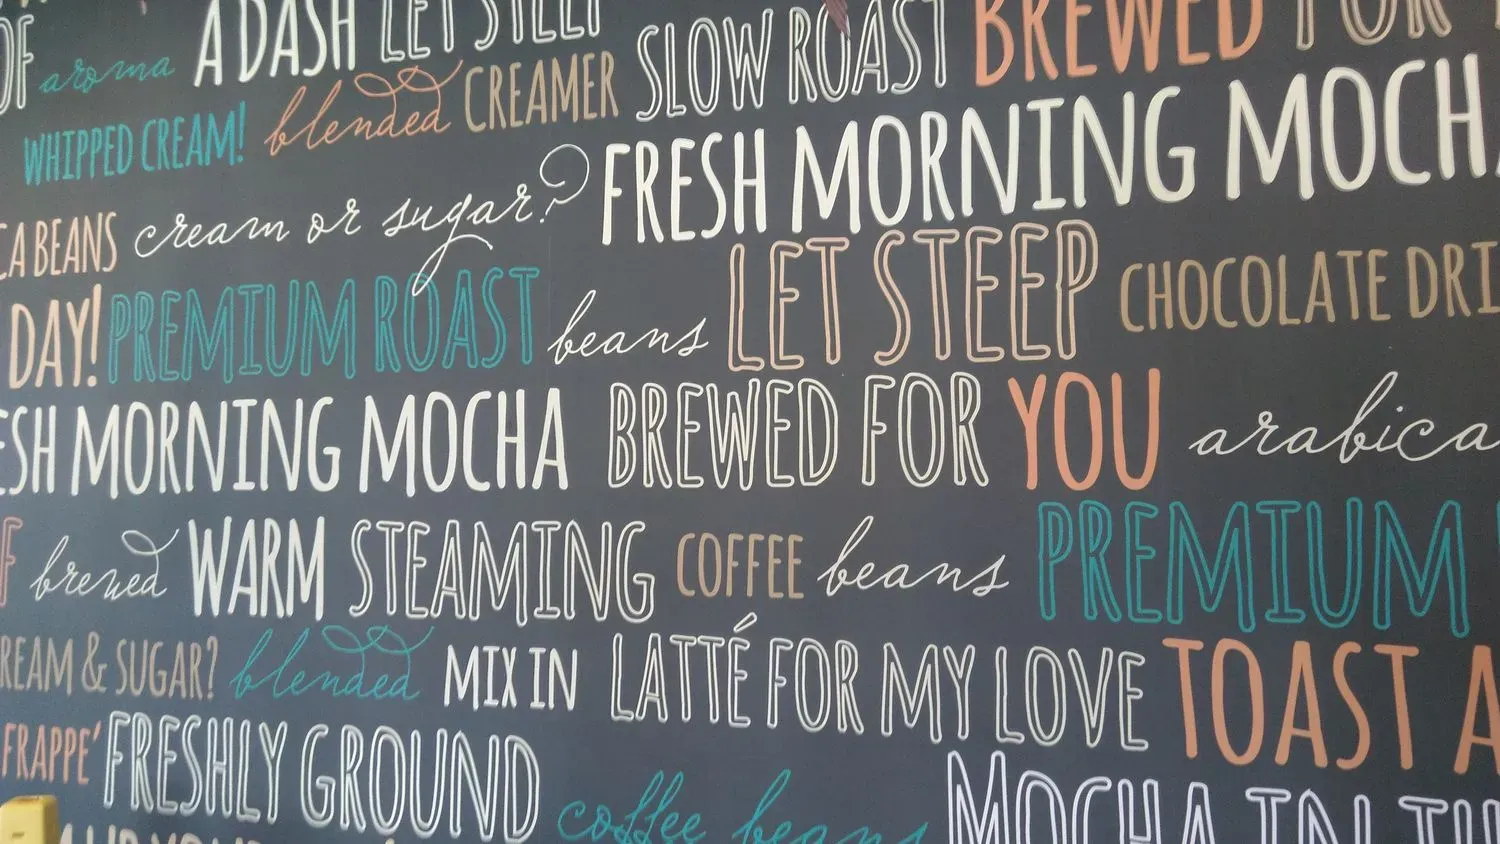 OF aroma A DASH LET STEEP SLOW ROAST BREWED FOR
WHIPPED CREAM! blended CREAMER FRESH MORNING MOCHA
CA BEANS cream or sugar? LET STEEP CHOCOLATE DRI
DAY! PREMIUM ROAST beans
ESH MORNING MOCHA BREWED FOR YOU arabica
F brewed WARM STEAMING COFFEE beans PREMIUM
REAM & SUGAR? blended MIX IN LATTÉ FOR MY LOVE TOAST A
FRAPPE' FRESHLY GROUND coffee beans MOCHA IN TH